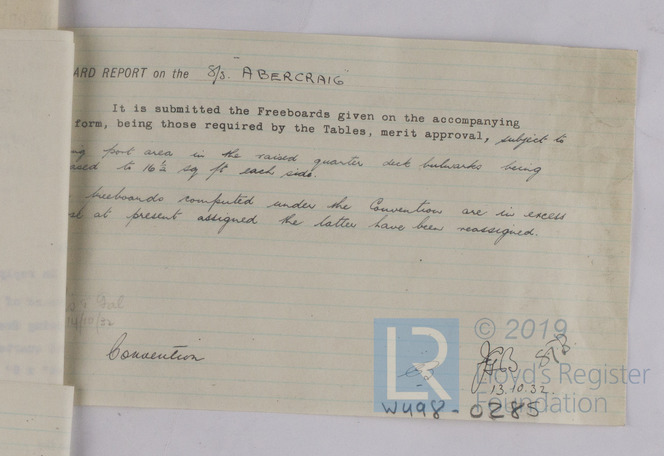 ARD REPORT on the S/S. ABERCRAIG
It is submitted the Freeboards given on the accompanying
form, being those required by the Tables, merit approval, subject to
ng port area in the raised quarter deck bulwarks being
ased to 16½ sq ft each side.
freeboards computed under the Convention are in excess
at present assigned the latter have been reassigned.
Convention
13.10.32
W498-0285
LR
© 2019
Lloyd's Register
Foundation